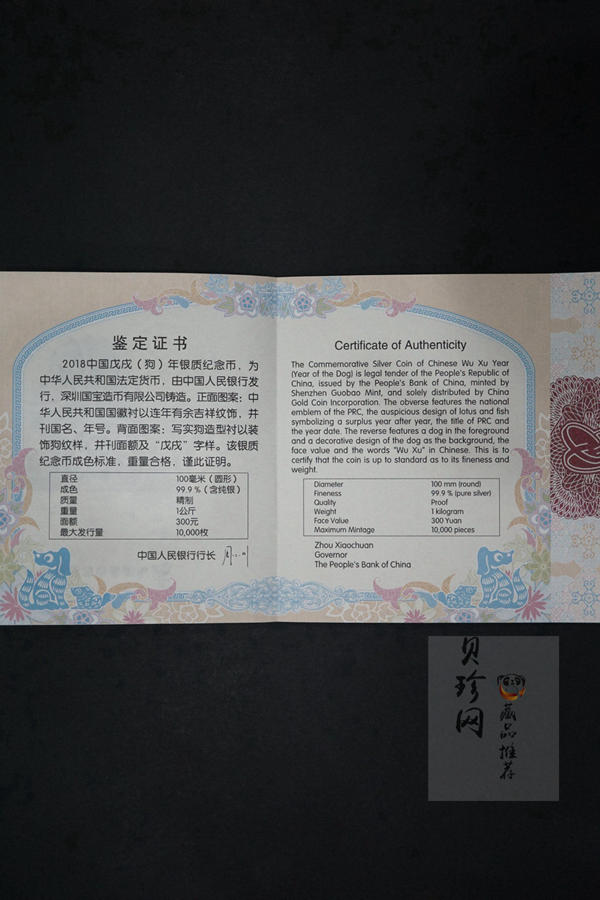 鉴定证书
2018中国戊戌（狗）年银质纪念币，为
中华人民共和国法定货币，由中国人民银行发
行，深圳国宝造币有限公司铸造。正面图案：中
华人民共和国国徽衬以连年有余吉祥纹饰，并
刊国名、年号。背面图案：写实狗造型衬以装
饰狗纹样，并刊面额及“戊戌”字样。该银质
纪念币成色标准，重量合格，谨此证明。
直径 100毫米（圆形）
成色 99.9％（含纯银）
质量 精制
重量 1公斤
面额 300元
最大发行量 10,000枚
中国人民银行行长
Certificate of Authenticity
The Commemorative Silver Coin of Chinese Wu Xu Year
(Year of the Dog) is legal tender of the People's Republic of
China, issued by the People's Bank of China, minted by
Shenzhen Guobao Mint, and solely distributed by China
Gold Coin Incorporation. The obverse features the national
emblem of the PRC, the auspicious design of lotus and fish
symbolizing a surplus year after year, the title of PRC and
the year date. The reverse features a dog in the foreground
and a decorative design of the dog as the background, the
face value and the words "Wu Xu" in Chinese. This is to
certify that the coin is up to standard as to its fineness and
weight.
Diameter 100 mm (round)
Fineness 99.9 % (pure silver)
Quality Proof
Weight 1 kilogram
Face Value 300 Yuan
Maximum Mintage 10,000 pieces
Zhou Xiaochuan
Governor
The People's Bank of China
贝珍网
藏品推荐